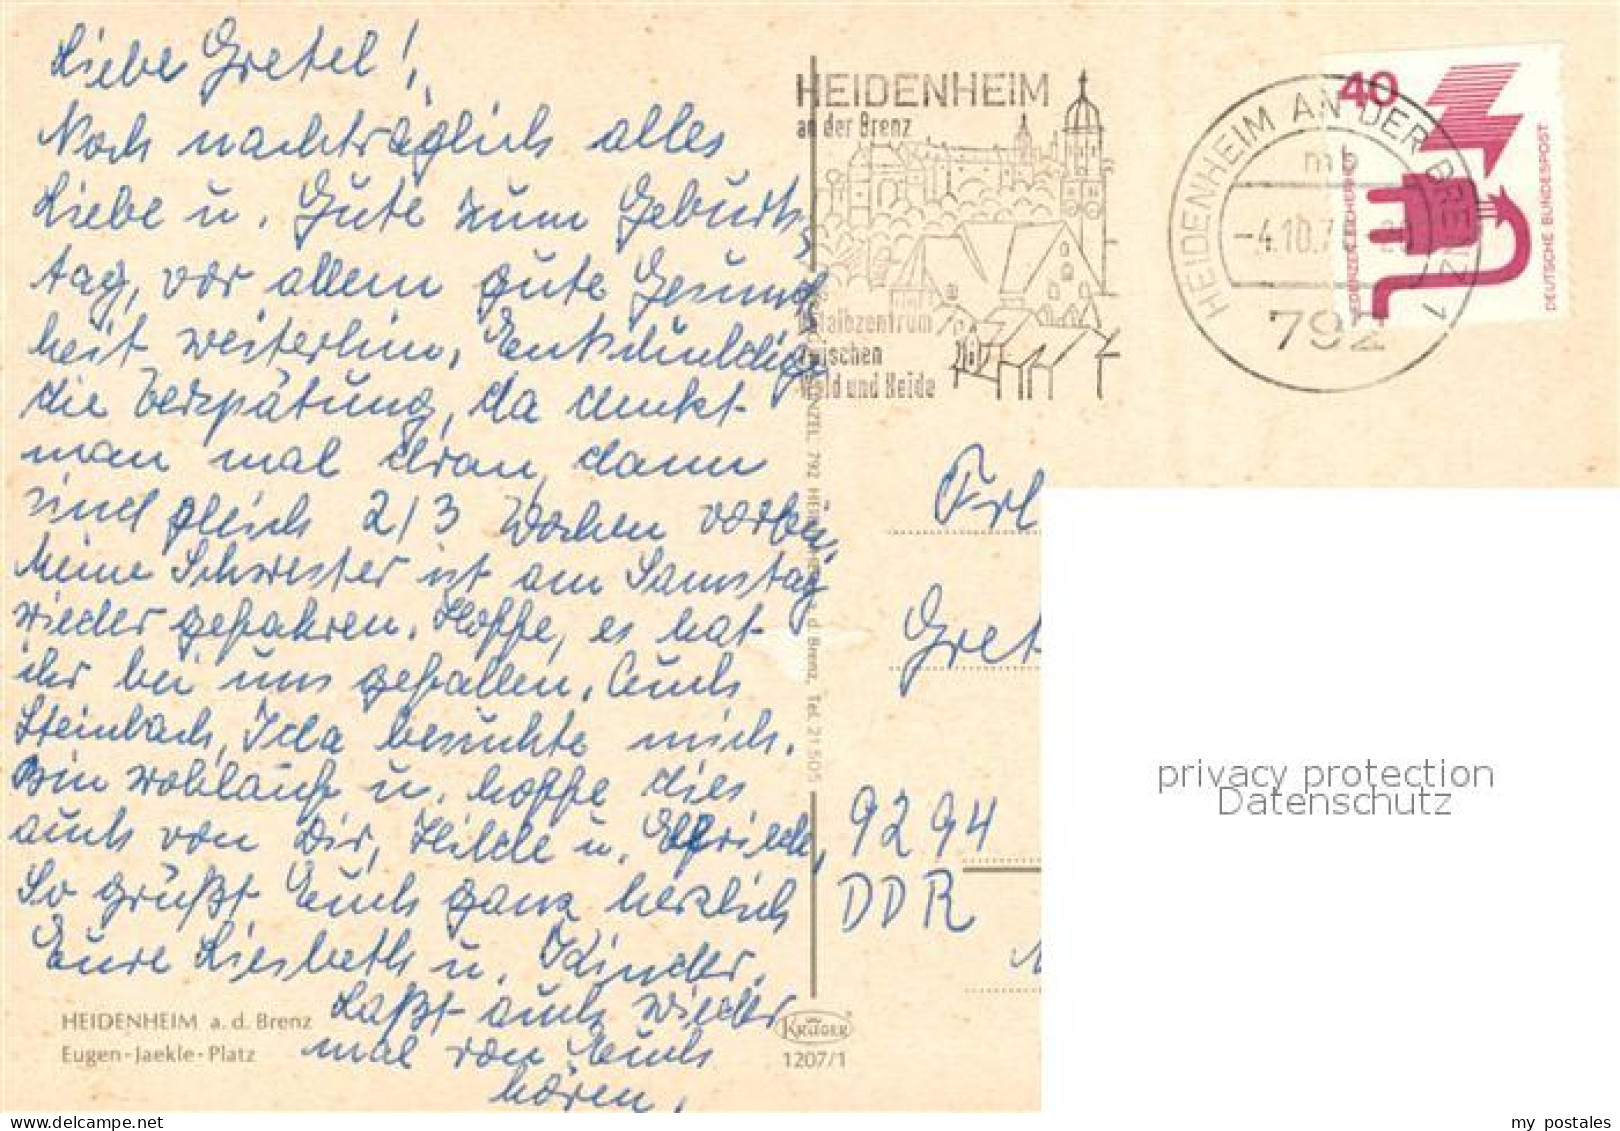 Liebe Gretel!
Noch nachträglich alles
Liebe u. Gute zum Geburts-
tag, vor allem gute Gesund
heit weiterhin. Entschuldige
die Verspätung, da denkt
man mal dran, dann
sind gleich 2/3 Wochen vorbei.
Meine Schwester ist am Samstag
wieder gefahren. Hoffe, es hat
ihr bei uns gefallen. Auch
Steinbach, Ida besuchte mich.
Bin wohlauf u. hoffe dies
auch von Dir, Hilde u. Elfriede,
So grüßt Euch ganz herzlich
Eure Liesbeth u. Kinder.
Laßt auch wieder
mal von Euch
hören.
HEIDENHEIM a. d. Brenz
Eugen-Jaekle-Platz
KRÜGER
1207/1
792 HEIDENHEIM a. d. Brenz, Tel. 21 505
HEIDENHEIM
an der Brenz
zwischen
Wald und Heide
HEIDENHEIM AN DER BRENZ 1
mb
-4.10.7
792
40
DEUTSCHE BUNDESPOST
Frl
Gret
9294
DDR
privacy protection
Datenschutz
my postales